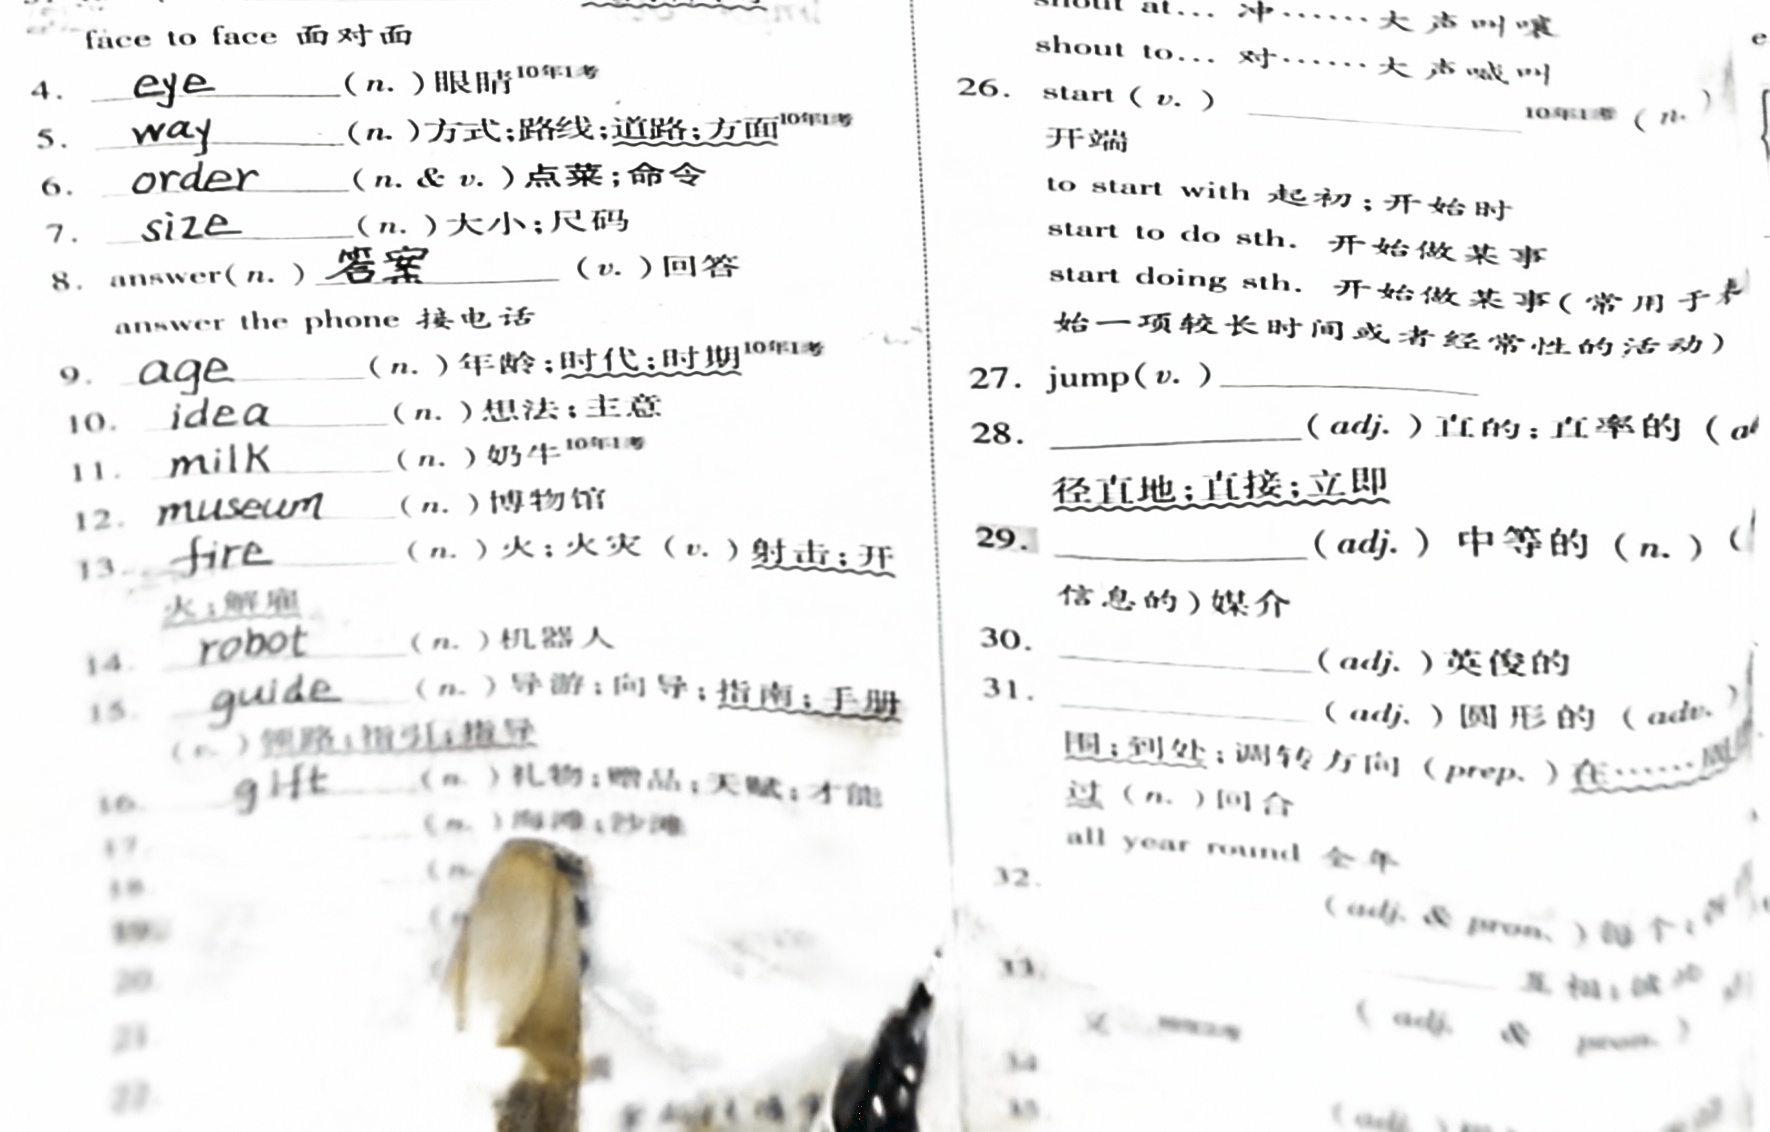 face to face 面对面
4. eye (n.)眼睛10年1考
5. way (n.)方式;路线;道路;方面10年1考
6. order (n. & v.)点菜;命令
7. size (n.)大小;尺码
8. answer(n.) 答案 (v.)回答
answer the phone 接电话
9. age (n.)年龄;时代;时期10年1考
10. idea (n.)想法;主意
11. milk (n.)奶牛10年1考
12. museum (n.)博物馆
13. fire (n.)火;火灾(v.)射击;开
火;解雇
14. robot (n.)机器人
15. guide (n.)导游;向导;指南;手册
(v.)领路;指引;指导
16. gift (n.)礼物;赠品;天赋;才能
17. (n.)海滩;沙滩
18. (n.
19.
20.
21.
22.
shout at… 冲……大声叫嚷
shout to… 对……大声喊叫
26. start(v.) 10年1考(n.)
开端
to start with 起初;开始时
start to do sth. 开始做某事
start doing sth. 开始做某事(常用于
始一项较长时间或者经常性的活动)
27. jump(v.)
28. (adj.)直的;直率的(
径直地;直接;立即
29. (adj.)中等的(n.)(
信息的)媒介
30. (adj.)英俊的
31. (adj.)圆形的(adv.)
围;到处;调转方向(prep.)在……周
过(n.)回合
all year round 全年
32. (adj. & pron.)每个;
33. 互相;彼此
(adj. & pron.)
34
35